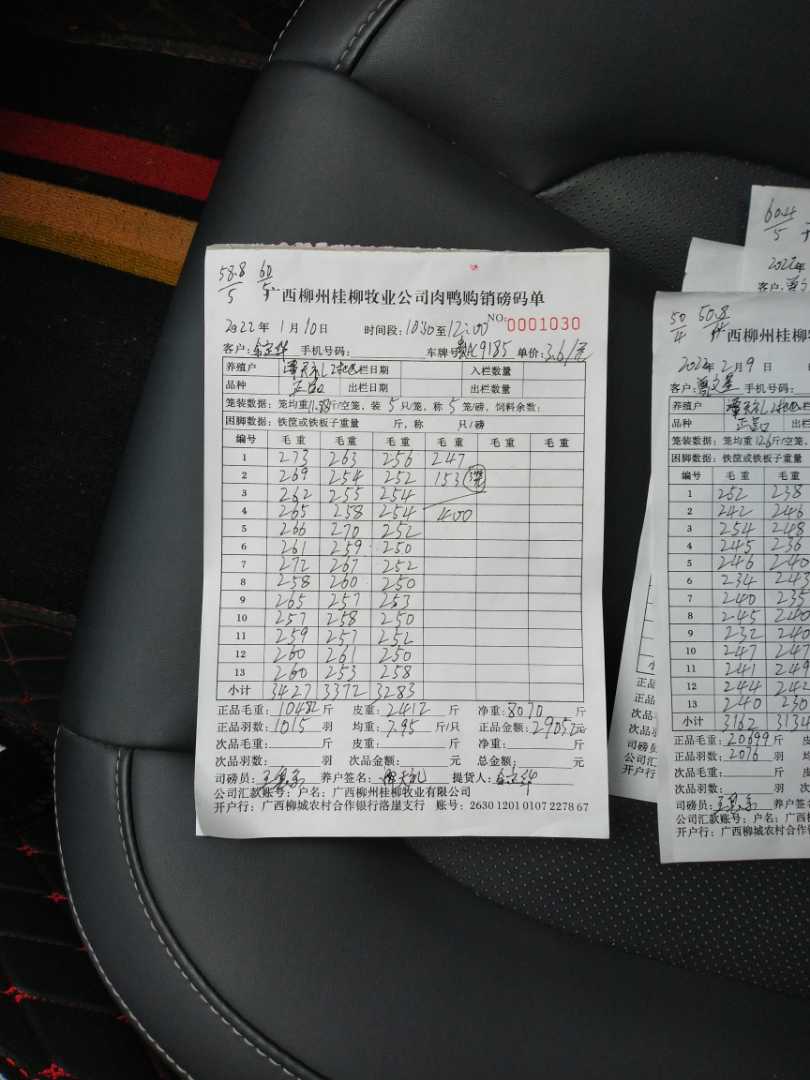 58.8 60
5 5
广西柳州桂柳牧业公司肉鸭购销磅码单
2022年1月10日 时间段:10:30至12:00 NO:0001030
客户: 手机号码: 车牌号 9185 单价:3.6/元
养殖户 出栏日期 入栏数量
品种 正品 出栏日期 出栏数量
笼装数据:笼均重11.88斤/空笼,装5只/笼,称5笼/磅,饲料余数:
困脚数据:铁筐或铁板子重量 斤,称 只/磅
编号 毛重 毛重 毛重 毛重 毛重 毛重
1 273 263 256 247
2 269 254 252 153
3 262 255 254
4 265 258 254 400
5 266 270 252
6 261 259 250
7 272 267 252
8 258 260 250
9 265 257 253
10 257 258 250
11 259 257 252
12 260 261 250
13 260 253 258
小计 3427 3372 3283
正品毛重:10482斤 皮重:2412斤 净重:8070斤
正品羽数:1015羽 均重:7.95斤/只 正品金额:29052元
次品毛重: 斤 皮重: 斤 净重: 斤
次品羽数: 羽 次品金额: 元 总金额: 元
司磅员: 养户签名: 提货人:
公司汇款账号:户名:广西柳州桂柳牧业有限公司
开户行:广西柳城农村合作银行洛崖支行 账号:2630 1201 0107 2278 67
60.4
5
2022年
客户:
50 50.8
4 4
西柳州桂柳
2022年2月9日
客户: 手机号码:
养殖户
品种 正品 出栏
笼装数据:笼均重12.6斤/空笼
困脚数据:铁筐或铁板子重量
编号 毛重 毛重
1 252 238
2 242 246
3 254 248
4 245 236
5 246 240
6 234 243
7 240 235
8 245 240
9 232 240
10 247 247
11 241 249
12 244 242
13 240 230
小计 3162 3134
正品毛重:20699斤 皮
正品羽数:2076羽 均
次品毛重: 斤
次品羽数: 羽
司磅员: 养户签
公司汇款账号:户名:广西
开户行:广西柳城农村合作银